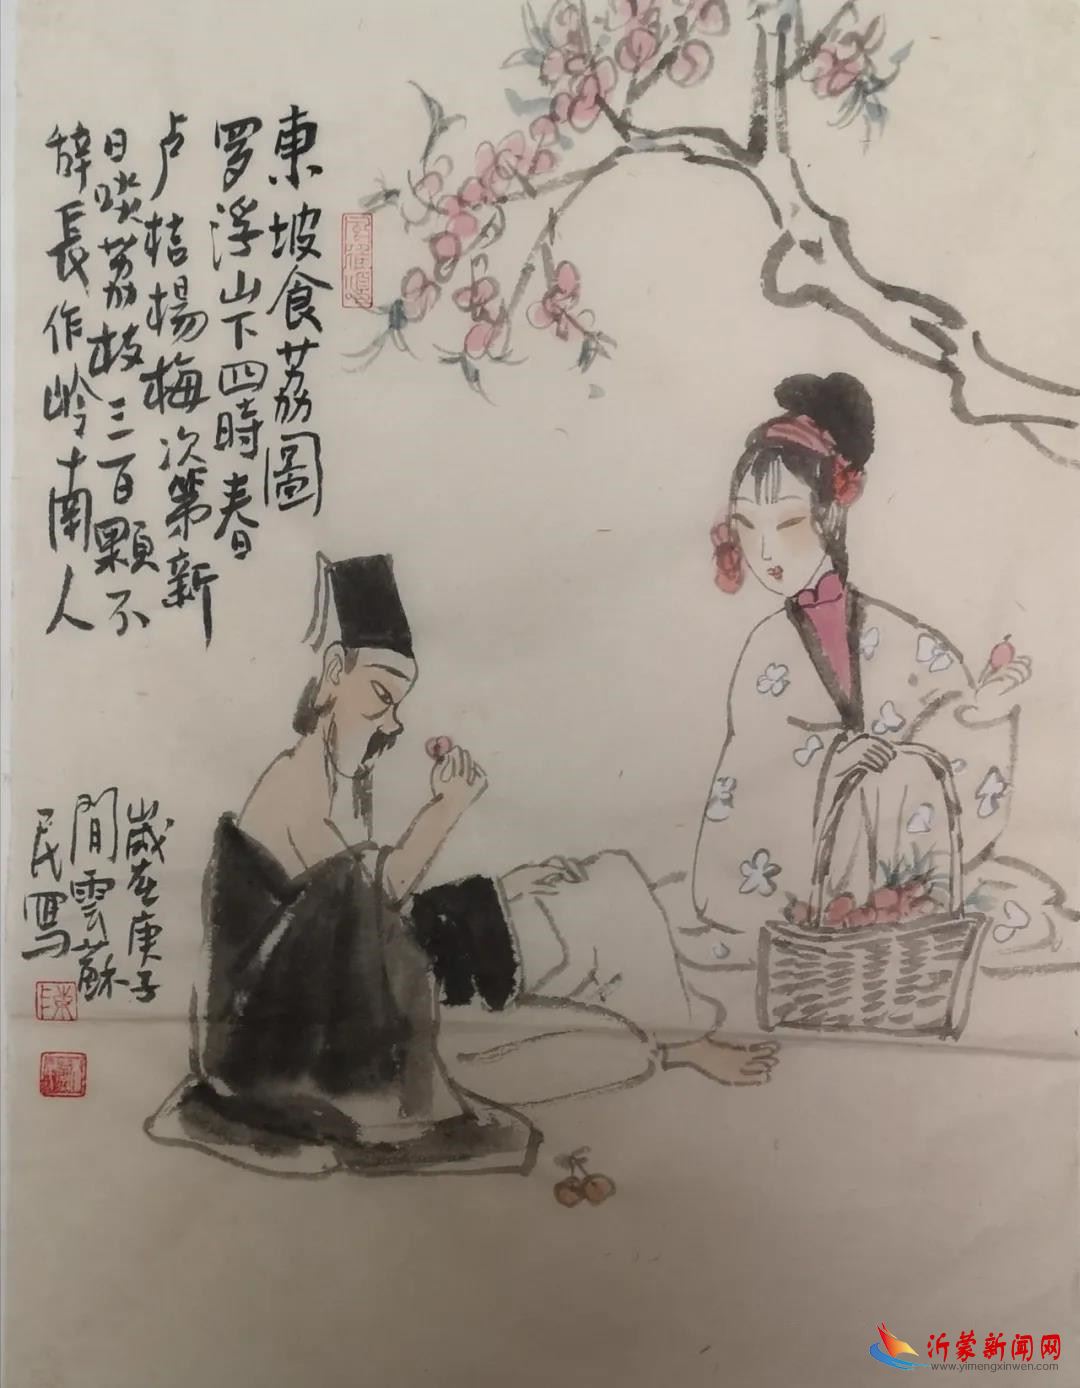 東坡食荔圖
罗浮山下四時春
卢桔楊梅次第新
日啖荔枝三百顆不
辞長作岭南人
歲在庚子
閒雲蘇
民寫
沂蒙新闻网
www.yimengxinwen.com